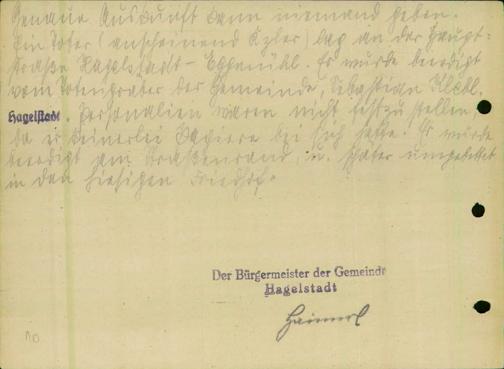 Genaue Auskunft kann niemand geben.
Ein Toter (anscheinend Kzler) lag an der Haupt-
straße Hagelstadt - Eggmühl. Er wurde beerdigt
vom Totengräber der Gemeinde, Sebastian
Hagelstadt. Personalien waren nicht festzustellen,
da er keinerlei Papiere bei sich hatte. Er wurde
beerdigt am Straßenrand u. später umgebettet
in den hiesigen Friedhof.
Der Bürgermeister der Gemeinde
Hagelstadt